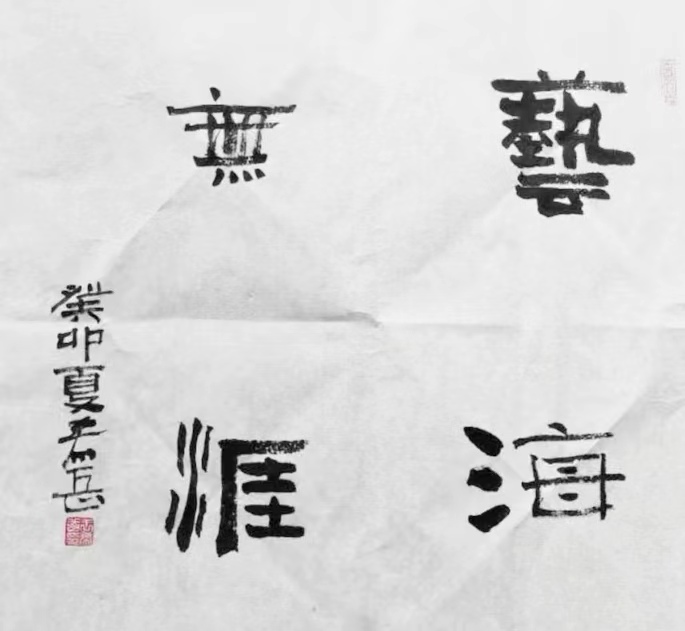 藝海
無涯
癸卯夏